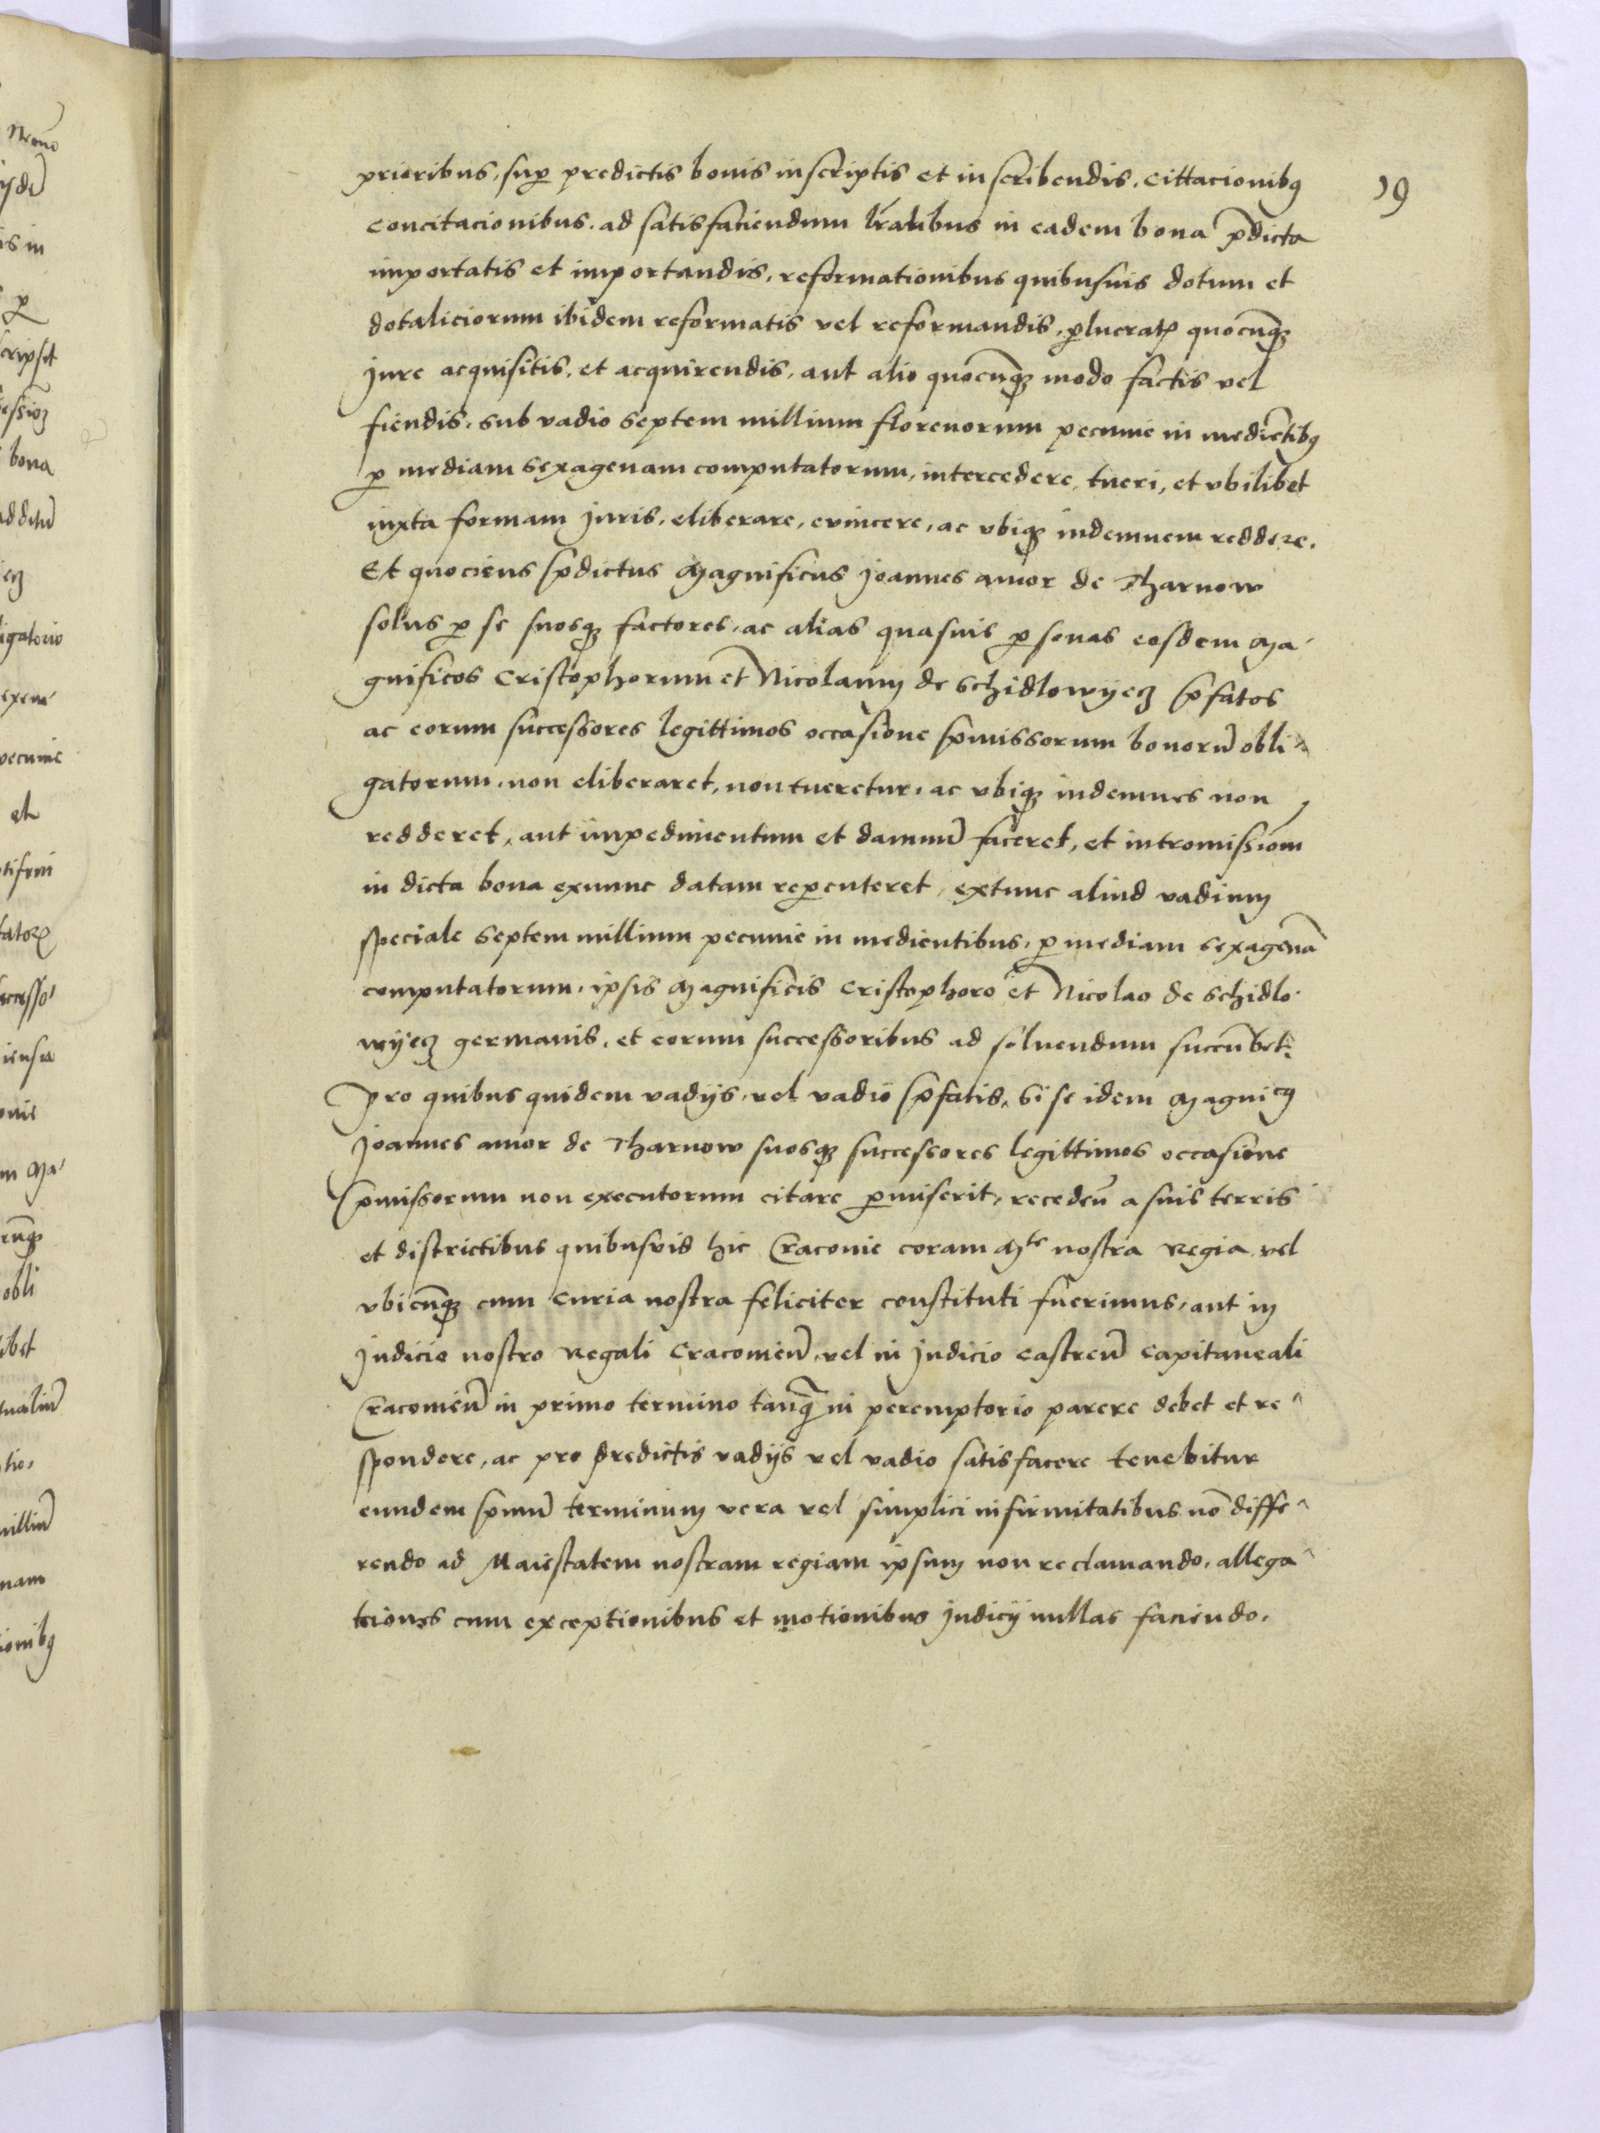 19
prioribus, sup predictis bonis inscriptis et inscribendis, cittacionibꝯ
concitacionibus, ad satisfaciendum in eadem bona p̄dicta
importatis et importandis, reformationibus quibusuis dotum et
dotaliciorum ibidem reformatis vel reformandis, quocūqꝫ
jure acquisitis, et acquirendis, aut alio quocūqꝫ modo factis vel
fiendis, sub vadio septem millium florenorum pecunie in mediētibꝯ
ꝑ mediam sexagenam computatorum, intercedere, tueri, et vbilibet
iuxta formam juris, eliberare, evincere, ac vbiqꝫ indemnem reddere.
Et quociens p̄dictus Magnificus joannes amor de Tharnow
solus ꝑ se suosqꝫ factores, ac alias quasuis ꝑsonas eosdem Ma-
gnificos Cristophorum et Nicolaum de Schidlowyecz p̄fatos
ac eorum successores legittimos occasione p̄missorum bonorū obli-
gatorum, non eliberaret, non tueretur, ac vbiqꝫ indemnes non
redderet, aut impedimentum et damnū faceret, et intromissiōm
in dicta bona exnunc datam repenteret, extunc aliud vadium
speciale septem millium pecunie in medientibus, ꝑ mediam sexagenā
computatorum, ipsis Magnificis Cristophoro et Nicolao de Schidlo-
wyecz germanis, et eorum successoribus ad soluendum succūbet.
Pro quibus quidem vadijs, vel vadio p̄fatis, si se idem Magnicꝯ
Joannes amor de Tharnow suosqꝫ successores legittimos occasione
p̄missorum non executorum citare ꝑmiserit, recedeñ a suis terris
et districtibus quibusvis hic Cracovie coram Mte nostra Regia vel
vbicūqꝫ cum curia nostra feliciter constituti fuerimus, aut in
judicio nostro Regali Cracovieñ, vel in judicio castreñ capitaneali
Cracovieñ in primo termino tanqꝫ in peremptorio parere debet et re-
spondere, ac pro predictis vadijs vel vadio satisfacere tenebitur
eundem p̄mū terminum vera vel simplici infirmitatibus nō diffe-
rendo ad Maiestatem nostram regiam ipsum non reclamando, allega-
tiones cum exceptionibus et motionibus judicij nullas faciendo.